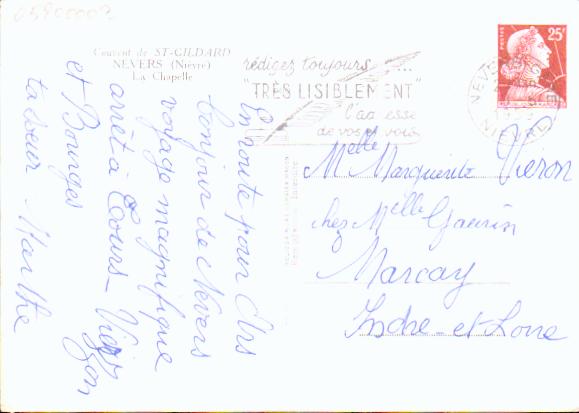 05900002
Couvent de ST-GILDARD
NEVERS (Nièvre)
La Chapelle
rédigez toujours ....
"TRÈS LISIBLEMENT"
l'ad esse
de vos voi
NEVERS
NIEVRE
POSTES
25F
En route pour Ars
bonjour de Nevers
voyage magnifique
arrêt à Tours - Vier
zon
et Bourges
ta sœur - Marthe
Melle Marguerite Vieron
chez Melle Guérin
Marcay
Indre-et-Loire